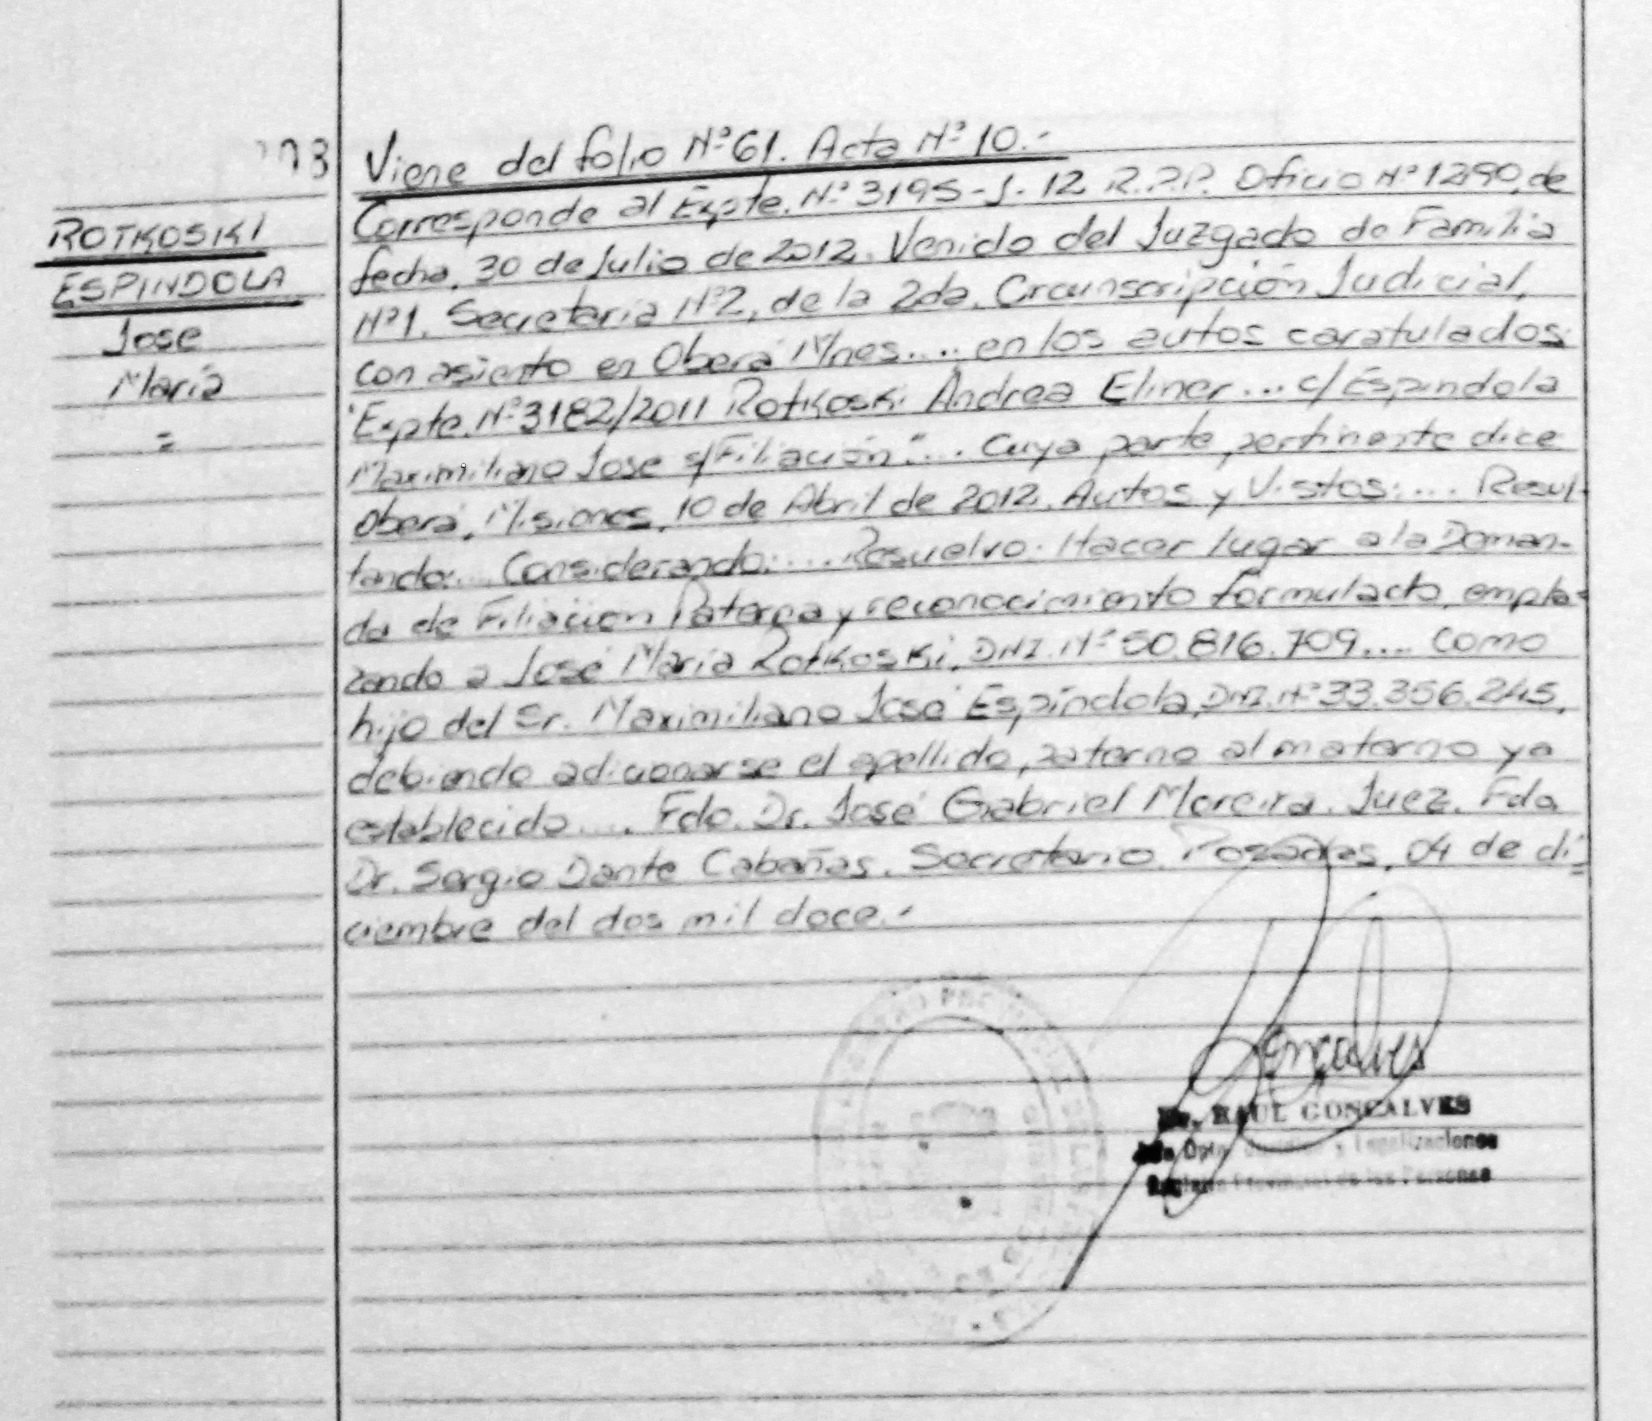 Viene del folio Nº 61. Acta Nº 10.-
ROTKOSKI
ESPINDOLA
Jose
María
=
Corresponde al Expte. Nº 3195-J-12 R.P.P. Oficio Nº 1290, de
fecha, 30 de Julio de 2012. Venido del Juzgado de Familia
Nº1. Secretaria Nº2, de la 2da. Circunscripción Judicial,
con asiento en Oberá Mnes.... en los autos caratulados:
"Expte. Nº 3182/2011 Rotkoski Andrea Eliner... c/ Espindola
Maximiliano Jose s/Filiación".... Cuya parte pertinente dice
Oberá, Misiones, 10 de Abril de 2012. Autos y Vistos:.... Resul-
tando:... Considerando:.... Resuelvo: Hacer lugar a la Deman-
da de Filiación Paterna y reconocimiento formulado, empla-
zando a José María Rotkoski, DNI. Nº 50.816.709.... Como
hijo del Sr. Maximiliano José Espíndola, DNI. Nº 33.356.245,
debiendo adicionarse el apellido paterno al materno ya
establecido.... Fdo. Dr. José Gabriel Moreira. Juez. Fdo
Dr. Sergio Dante Cabañas. Secretario. Posadas, 04 de di=
ciembre del dos mil doce.-
Goncalves
RAUL GONCALVES
Dpto. y Legalizaciones
Provincial de las Personas